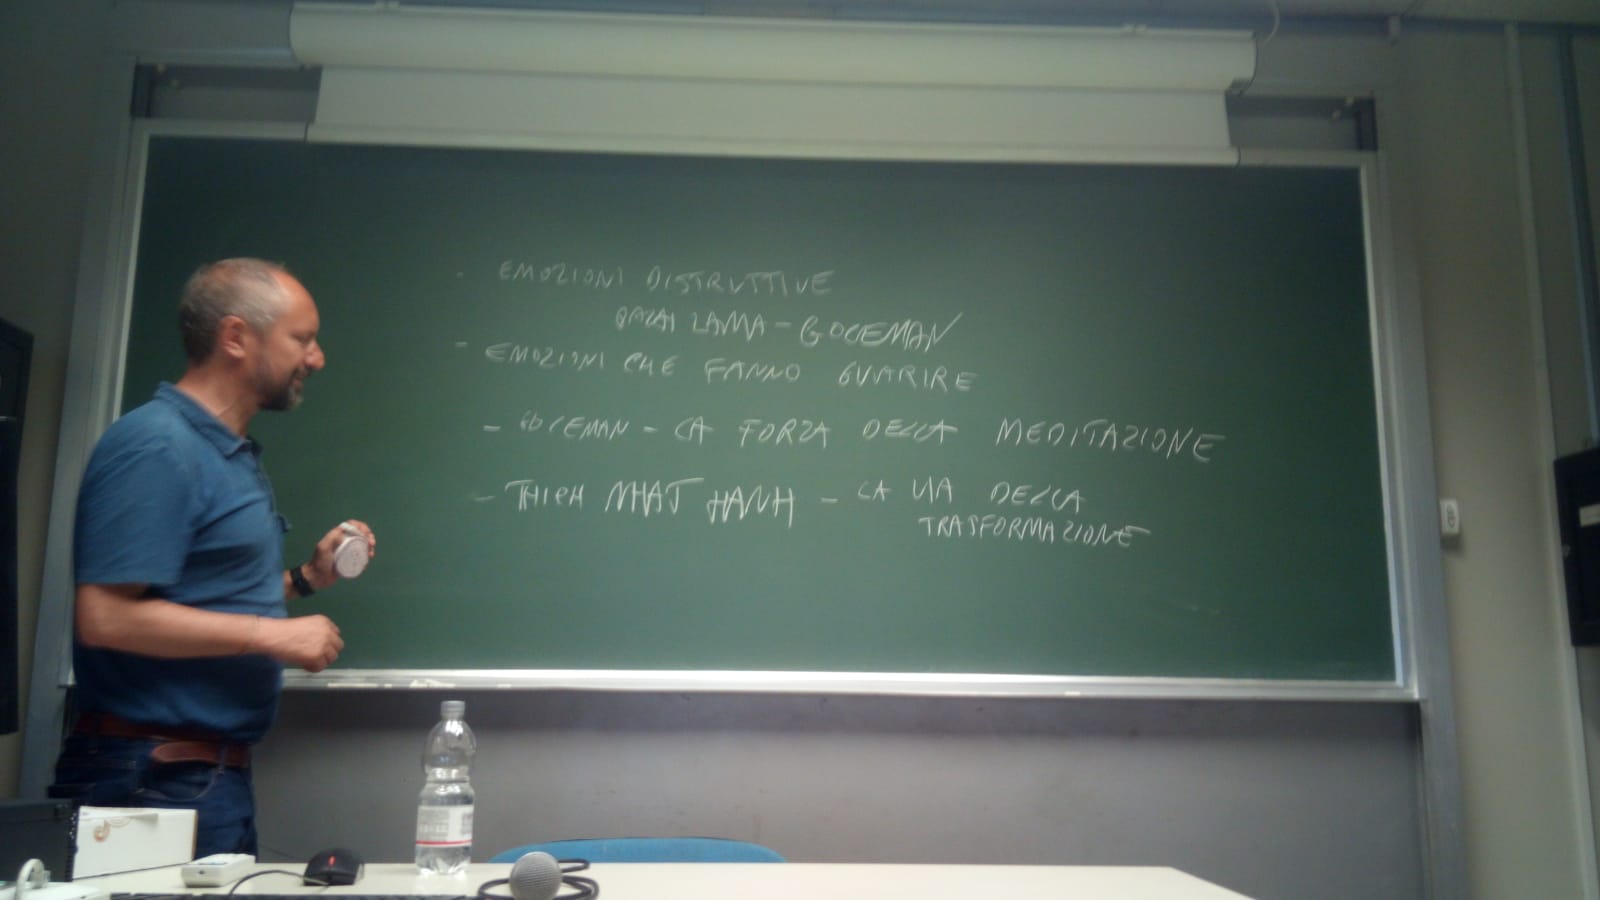 . EMOZIONI DISTRUTTIVE
DALAI LAMA - GOLEMAN
- EMOZIONI CHE FANNO GUARIRE
- GOLEMAN - LA FORZA DELLA MEDITAZIONE
- THICH NHAT HANH - LA VIA DELLA
TRASFORMAZIONE